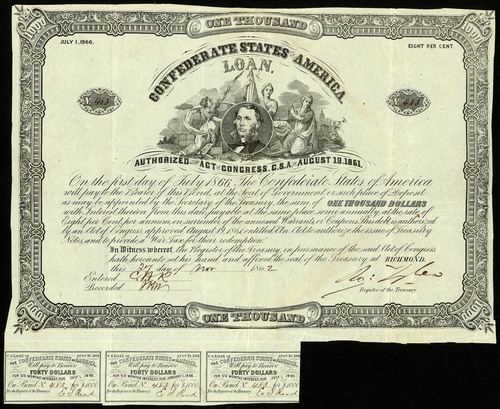 ONE THOUSAND
1000
1000
JULY 1, 1866.
EIGHT PER CENT.
CONFEDERATE STATES AMERICA
LOAN.
AUTHORIZED ACT CONGRESS, C.S.A. AUGUST 19, 1861.
On the first day of July 1866 The Confederate States of America
will pay to the Bearer of this Bond, at the Seat of Government or at such place of Deposit
as may be appointed by the Secretary of the Treasury, the sum of ONE THOUSAND DOLLARS
with Interest thereon from this date, payable at the same place, semi annually, at the rate of
Eight per Cent per annum, on surrender of the annexed Warrants or Coupons. This debt is authorized
by an Act of Congress approved August 19, 1861, entitled An Act to authorize the issue of Treasury
Notes, and to provide a War Tax for their redemption.
In Witness whereof, the Register of the Treasury, in pursuance of the said Act of Congress,
hath hereunto set his hand and affixed the seal of the Treasury at RICHMOND.
this day of Nov 1862
Entered
Recorded
Register of the Treasury
1000
ONE THOUSAND
1000
THE CONFEDERATE STATES OF AMERICA
Will pay to Bearer
FORTY DOLLARS
FOR SIX MONTHS INTEREST, DUE
On Bond No for $1000
For the Register of the Treasury
THE CONFEDERATE STATES OF AMERICA
Will pay to Bearer
FORTY DOLLARS
FOR SIX MONTHS INTEREST, DUE
On Bond No for $1000
For the Register of the Treasury
THE CONFEDERATE STATES OF AMERICA
Will pay to Bearer
FORTY DOLLARS
FOR SIX MONTHS INTEREST, DUE
On Bond No for $1000
For the Register of the Treasury